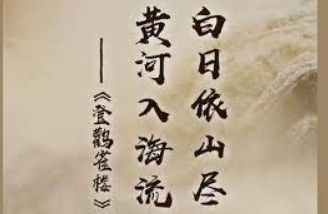 白日依山尽
黄河入海流
——《登鹳雀楼》